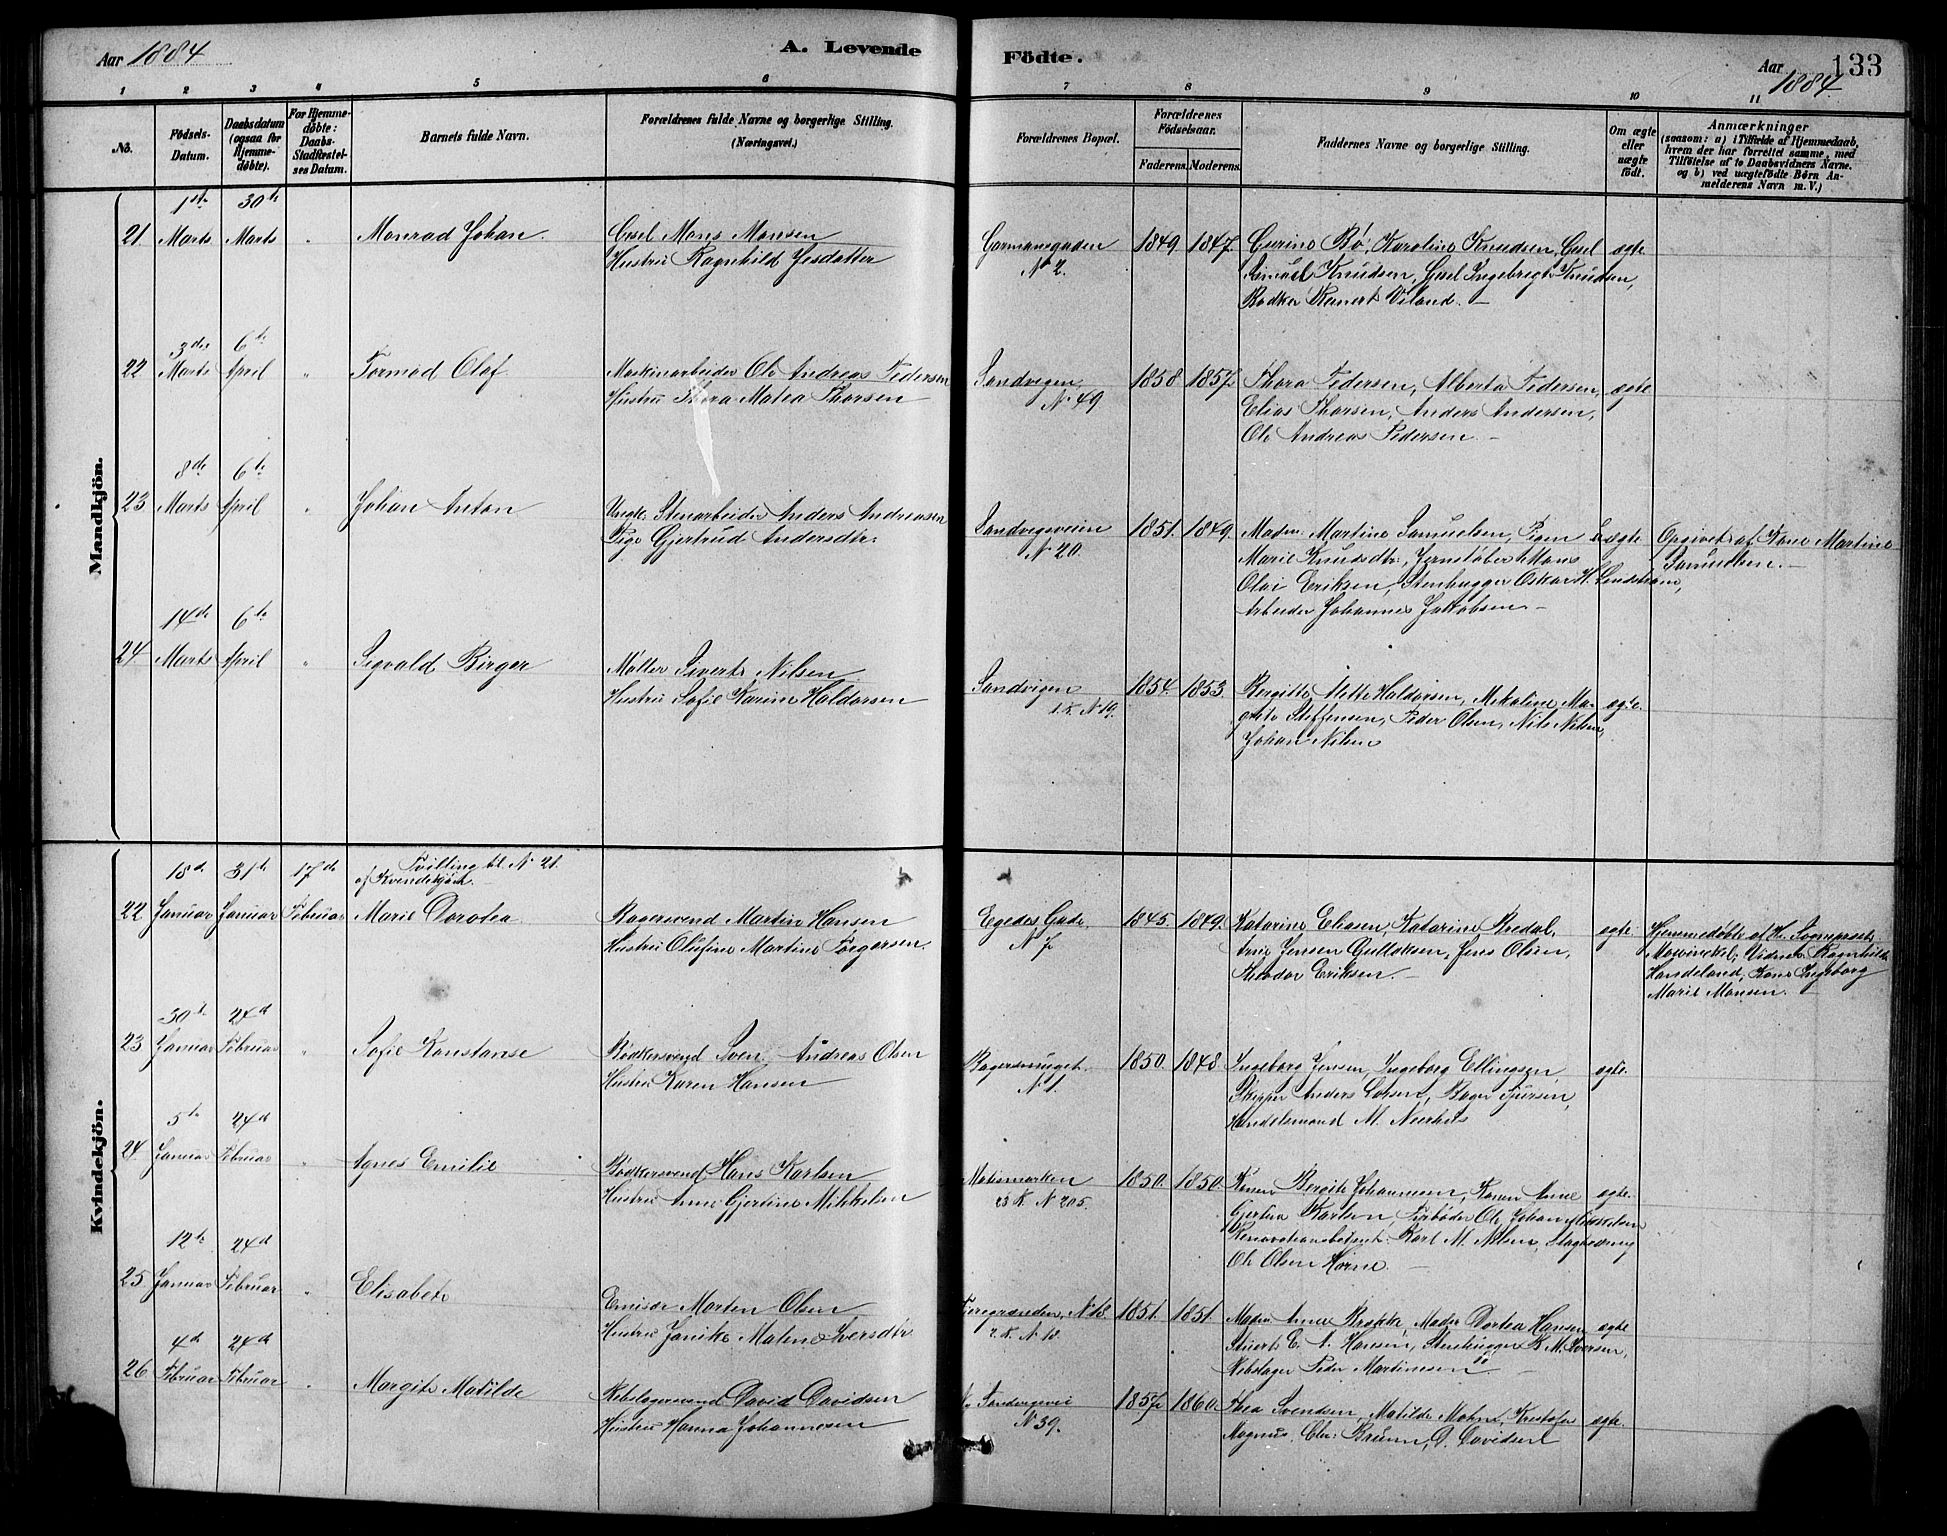 Aar 1884
A. Levende
Födte.
Aar 1884
133
1 2 3 4 5 6 7 8 9 10 11
No.
Födsels-
Datum.
Daabsdatum
(ogsaa for
Hjemme-
døbte).
For Hjemme-
døbte:
Daabs-
Stadfæstel-
ses Datum.
Barnets fulde Navn.
Forældrenes fulde Navne og borgerlige Stilling.
(Næringsvei.)
Forældrenes Bopæl.
Forældrenes
Födselsaar.
Faderens. Moderens.
Faddernes Navne og borgerlige Stilling.
Om ægte
eller
uægte
født.
Anmærkninger
(saasom: a) i Tilfælde af Hjemmedaab,
hvem der har forrettet samme, med
Tilföielse af to Daabsvidners Navne.
og b) ved uægtefödte Börn An-
melderens Navn m. V.)
Mandkjön.
1ste 30te
21. Marts Marts " Monrad Johan.
Mons Monsen
Hustru Ragnhild
No 2.
1849 1847
Bø, Karoline Knudsen,
Knudsen, Ingebrigt Knudsen,
ægte
3die 6te
22 Marts April " Tormod Olaf
Maskinarbeider Ole Andreas Pedersen
Hustru Thora Matea Thorsen
Sandvigen
N 49
1858 1857
Thora Pedersen, Alberta Pedersen,
Elias Thorsen, Anders Andersen,
Ole Andreas Pedersen. —
ægte
8de 6te
23 Marts April " Johan Anton
Ungk. Stenarbeider Anders Andreasen
Pige Gjertrud Andersdtr.
Sandvigsveien
N 20.
1851. 1849.
Madm. Martine Samuelsen, Pigen
Marie Knudsdtr., Jernstøber Mons
Olai Eriksen, Stenhugger Oskar H. Lindstrøm,
Arbeider Johannes Jakobsen —
uægte
Opgivet af Kone Martine
Samuelsen. —
14de 6te
24 Marts April " Sigvald Birger
Møller Sivert Nilsen
Hustru Sofie Karine Haldorsen
Sandvigen
1.K. N 19.
1854. 1853.
Bergitte Mette Haldorsen, Mikoline Ma-
grete Steffensen, Peder Olsen, Nils Nilsen,
Johan Nilsen
ægte.
Kvindekjön.
18de 31te 17de
Tvilling til N 21.
af Kvindekjön. —
22 Januar Januar Februar Marie Dorotea
Bagersvend Martin Hansen
Hustru Olufine Martine Torgersen.
Egedes Gade
N 7
1845. 1849.
Katarine Eliasen, Katarine Bredal,
Arne Jensen Gulloksen, Jens Olsen,
Theodor Eriksen. —
ægte.
Hjemmedøbt af Hr. Sogneprest
Mowinckel; Vidner Ragnhild
Handeland, Kone Ingeborg
Marie Monsen. —
30te 24de
23 Januar Februar " Sofie Konstanse
Bødkersvend Sven Andreas Olsen
Hustru Karen Hansen
N 1.
1850. 1848.
Ingeborg Jensen, Ingeborg Ellingsen,
Skipper Anders Larsen, Bager
Handelsmand M.
ægte.
5te 24de
24. Januar Februar " Agnes Emilie
Bødkersvend Hans Karlsen
Hustru Anne Gjertine Mikkelsen
23 K. N 205.
1850. 1850.
Karen Bergite Johannesen, Karen Anne
Gjertine Karlsen, Fyrbøder Ole Johan Mikkelsen
Renovationsbetjent Karl M. Nilsen,
Ole Olsen
ægte.
12te 24de
25 Januar Februar " Elisabet
Morten Olsen
Hustru Janike Malene Iversdtr
N 18.
7.K. N 18.
1851. 1851.
Madm. Anne Brokke, Madm. Dortea Hansen
Stuert E. A. Hansen, Stenhugger M. Iversen,
Rebslager Peder Martinesen
ægte
4de 24de
26 Februar Februar " Margit Matilde
Rebslagersvend David Davidsen
Hustru Hanna Johannesen
N. Sandvigsvei
N 39.
1857 1860.
Thea Svendsen, Matilde Mohn, Kristofer
Magnus, Chr. Bruun, D. Davidsen
ægte.